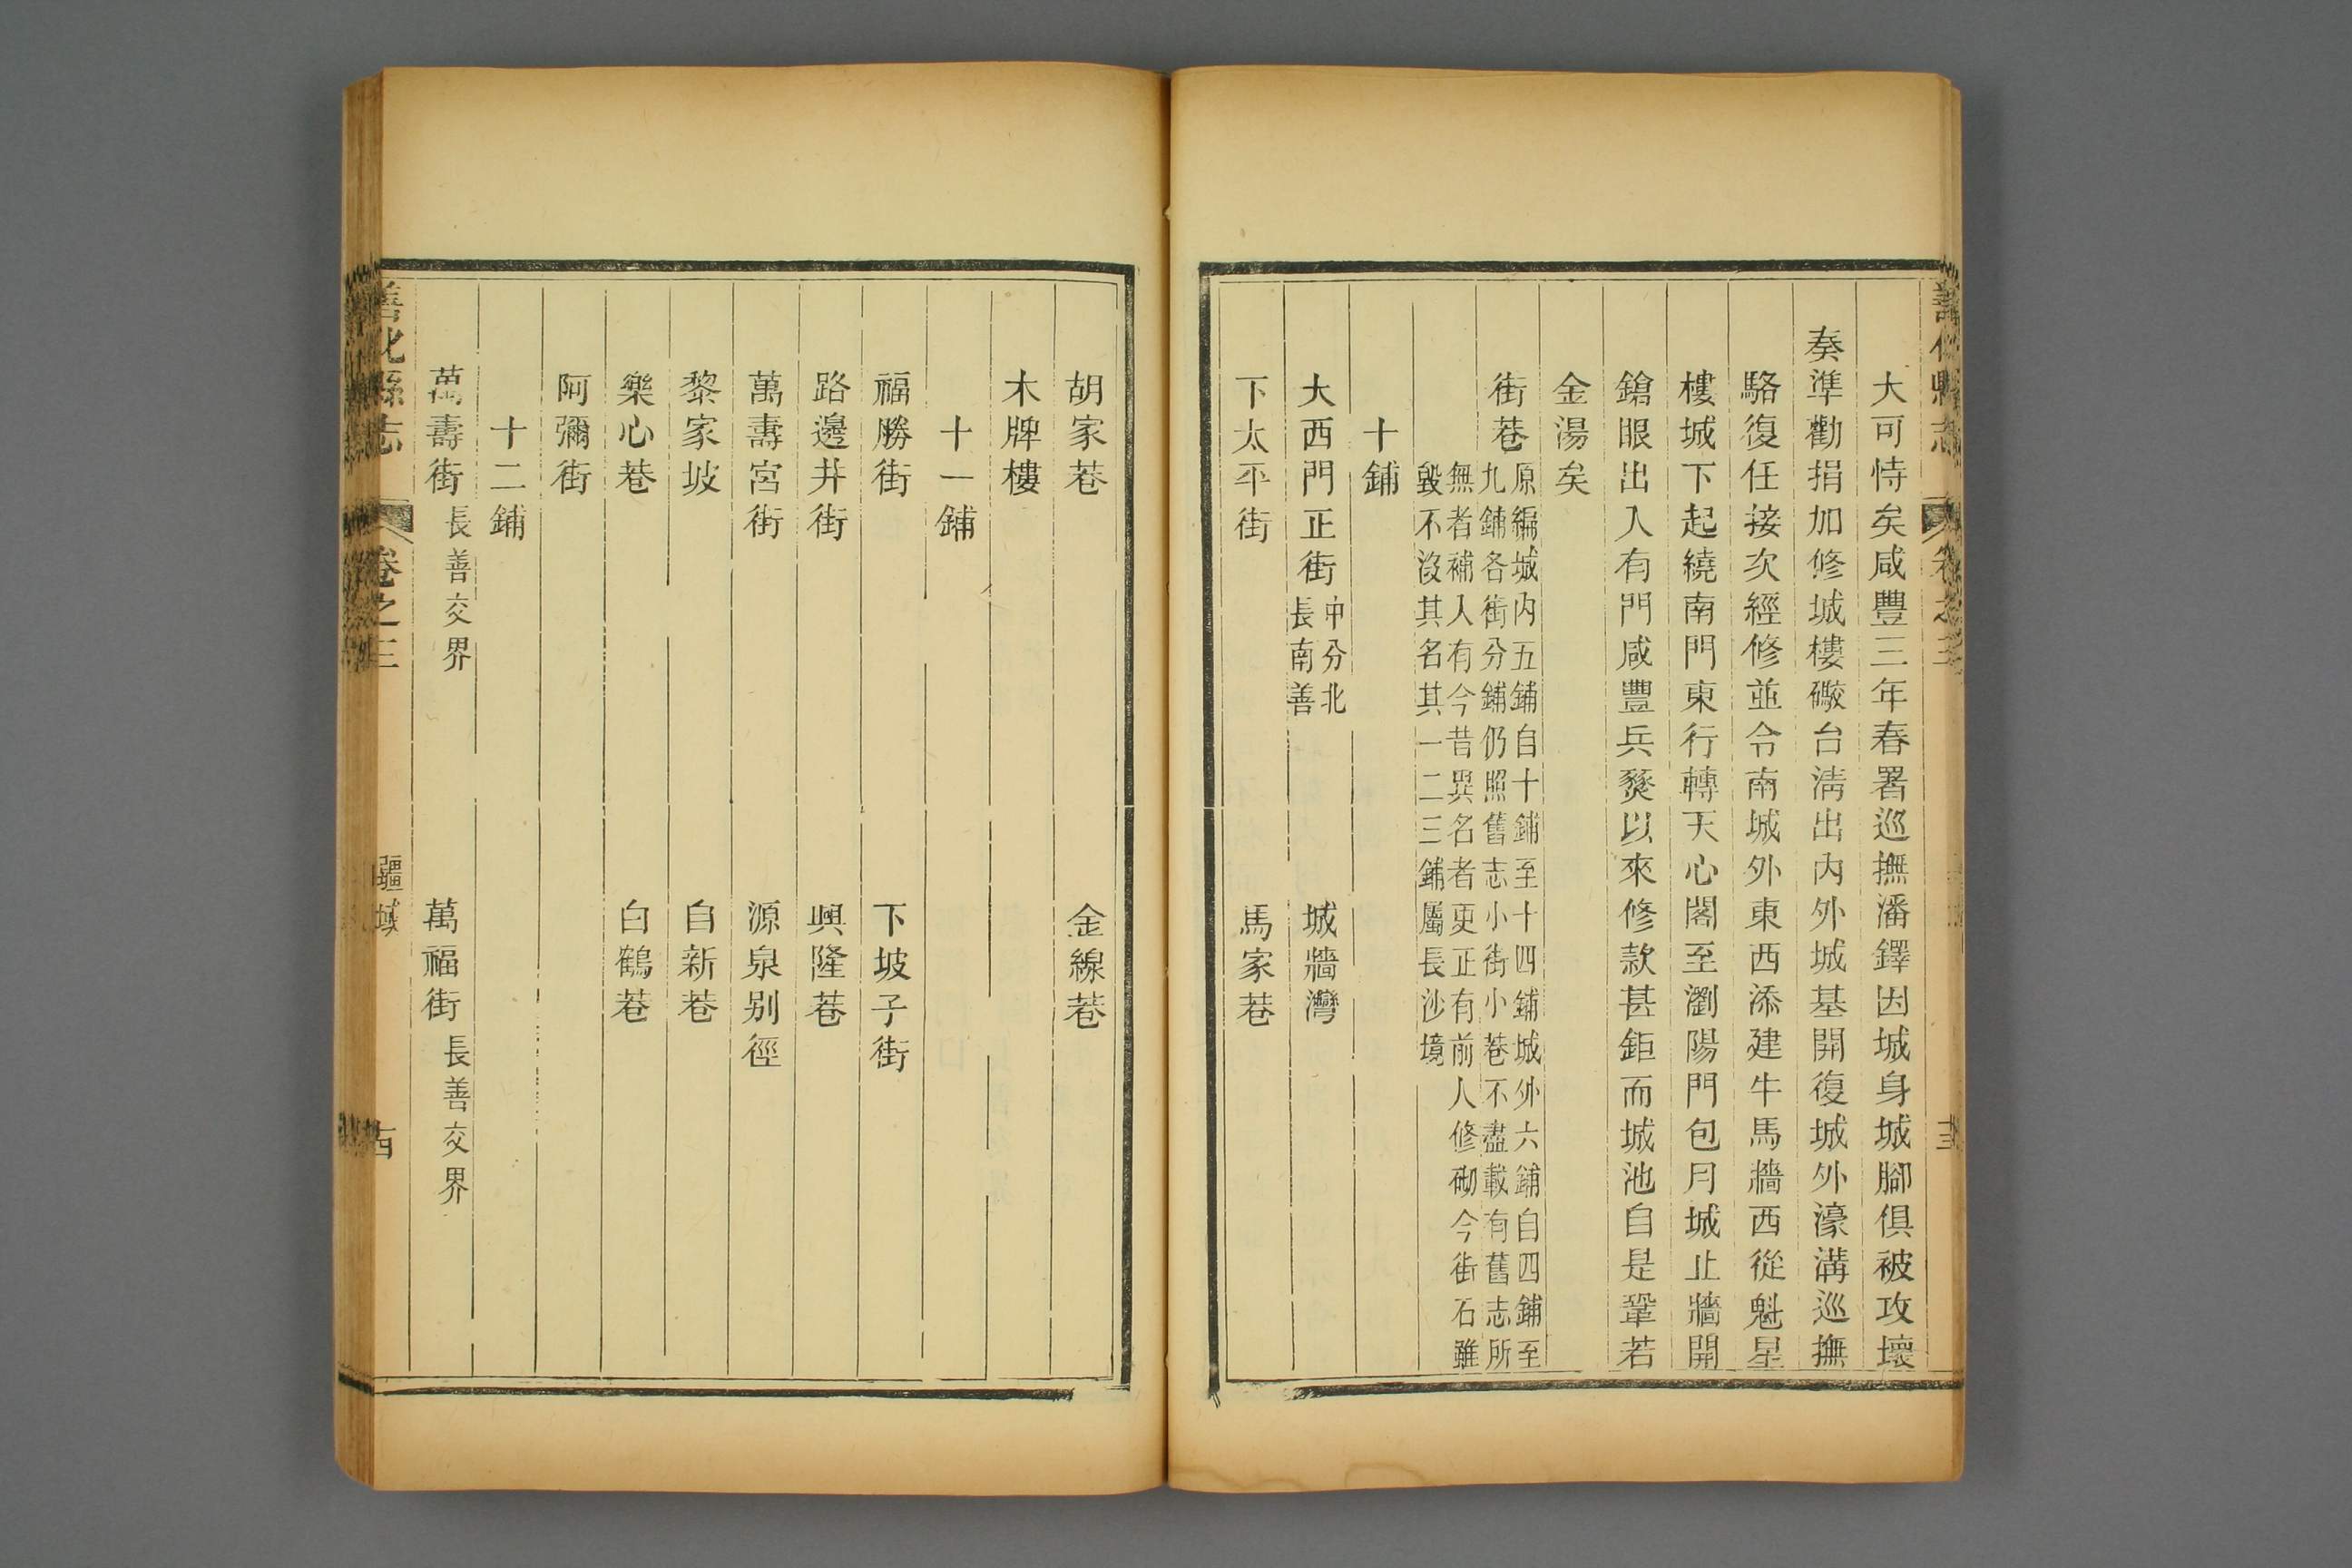 大可恃矣咸豐三年春署巡撫潘鐸因城身城腳俱被攻壞
奏準勸捐加修城樓礮台淸出內外城基開復城外濠溝巡撫
駱復任接次經修並令南城外東西添建牛馬牆西從魁星
樓城下起繞南門東行轉天心閣至瀏陽門包月城止牆開
鎗眼出入有門咸豐兵燹以來修款甚鉅而城池自是鞏若
金湯矣
街巷
原編城內五鋪自十鋪至十四鋪城外六鋪自四鋪至
九鋪各街分鋪仍照舊志小街小巷不盡載有舊志所
無者補人有今昔異名者更正有前人修砌今街石雖
毀不沒其名其一二三鋪屬長沙境
十鋪
大西門正街 中分北長南善 城牆灣
下太平街 馬家巷
胡家巷 金線巷
木牌樓
十一鋪
福勝街 下坡子街
路邊井街 興隆巷
萬壽宮街 源泉別徑
黎家坡 自新巷
樂心巷 白鶴巷
阿彌街
十二鋪
萬壽街 長善交界 萬福街 長善交界
善化縣志 卷之三 疆域